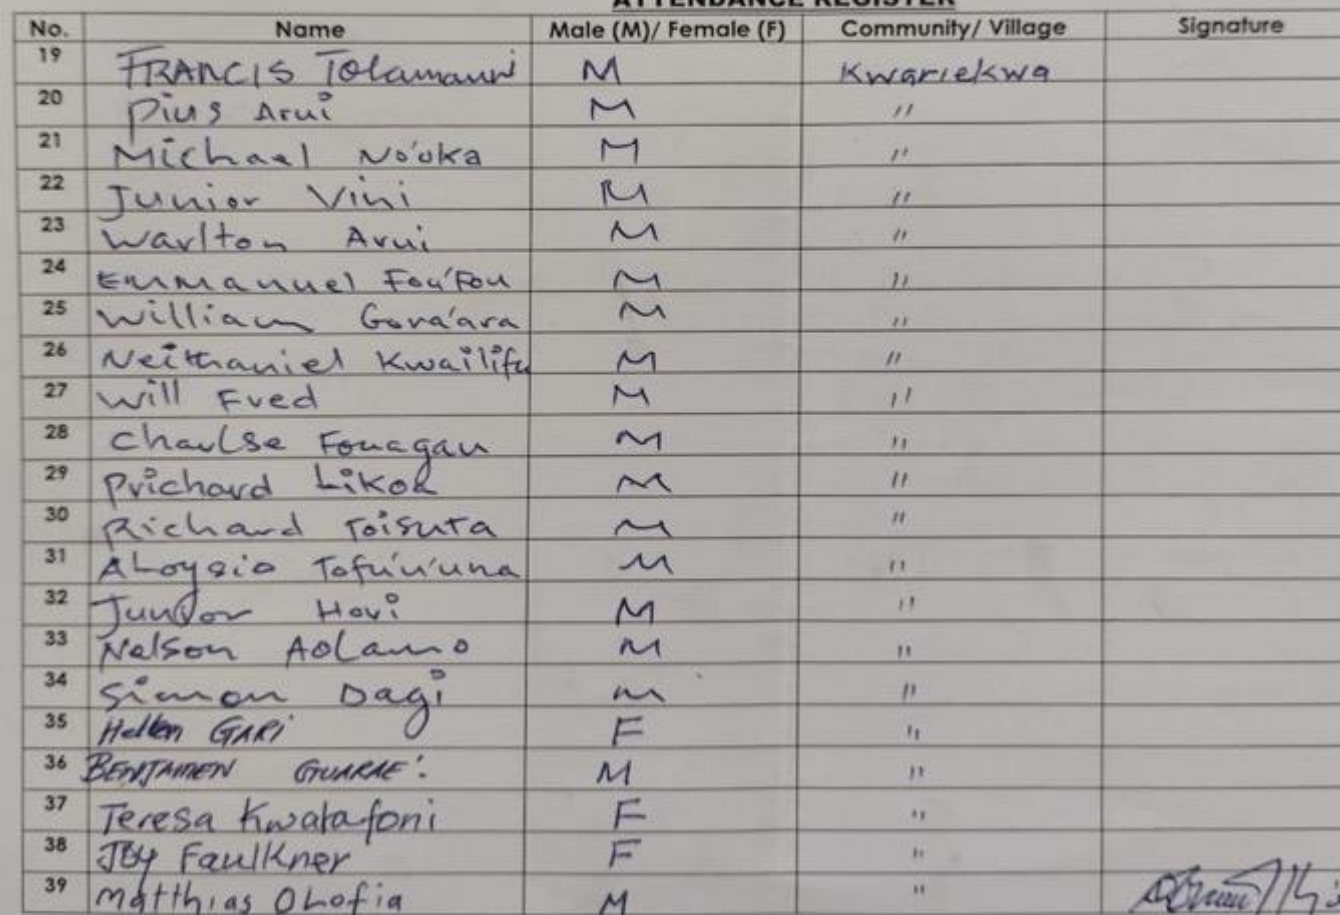 ATTENDANCE REGISTER
No. Name Male (M)/ Female (F) Community/ Village Signature
19 FRANCIS Tolamauri M Kwariekwa
20 Pius Arui M "
21 Michael No'oka M "
22 Junior Vini M "
23 Warlton Arui M "
24 Emmanuel Fou'Fou M "
25 William Gora'ara M "
26 Neithaniel Kwailifu M "
27 Will Fred M "
28 Charlse Fouagau M "
29 Prichard Likok M "
30 Richard Toisuta M "
31 ALoysio Tofu'u'una M "
32 Junior Hovi M "
33 Nelson AoLamo M "
34 Simon Dagi M "
35 Hellen GARI F "
36 BENJAMEN GUARAE'. M "
37 Teresa Kwatafoni F "
38 Joy Faulkner F "
39 Matthias OLofia M "